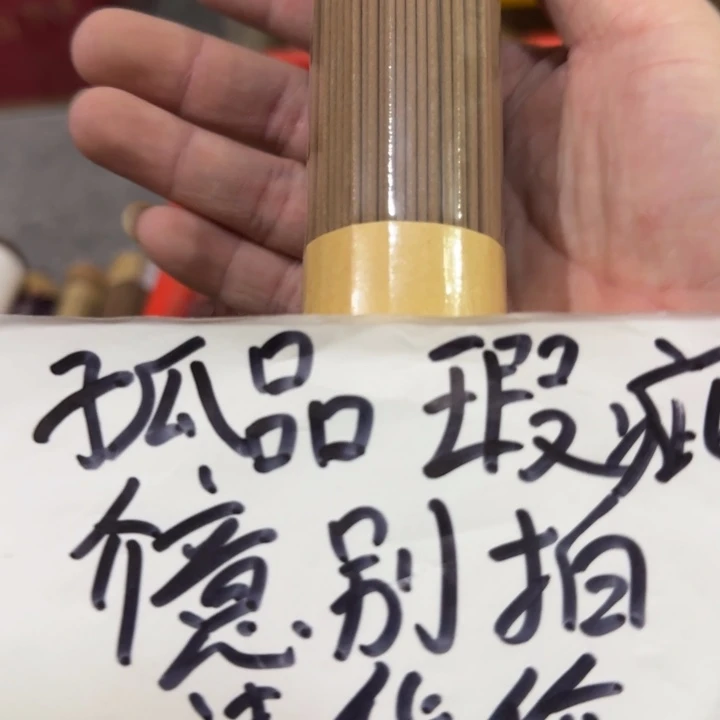 孤品 瑕疵
介意别拍